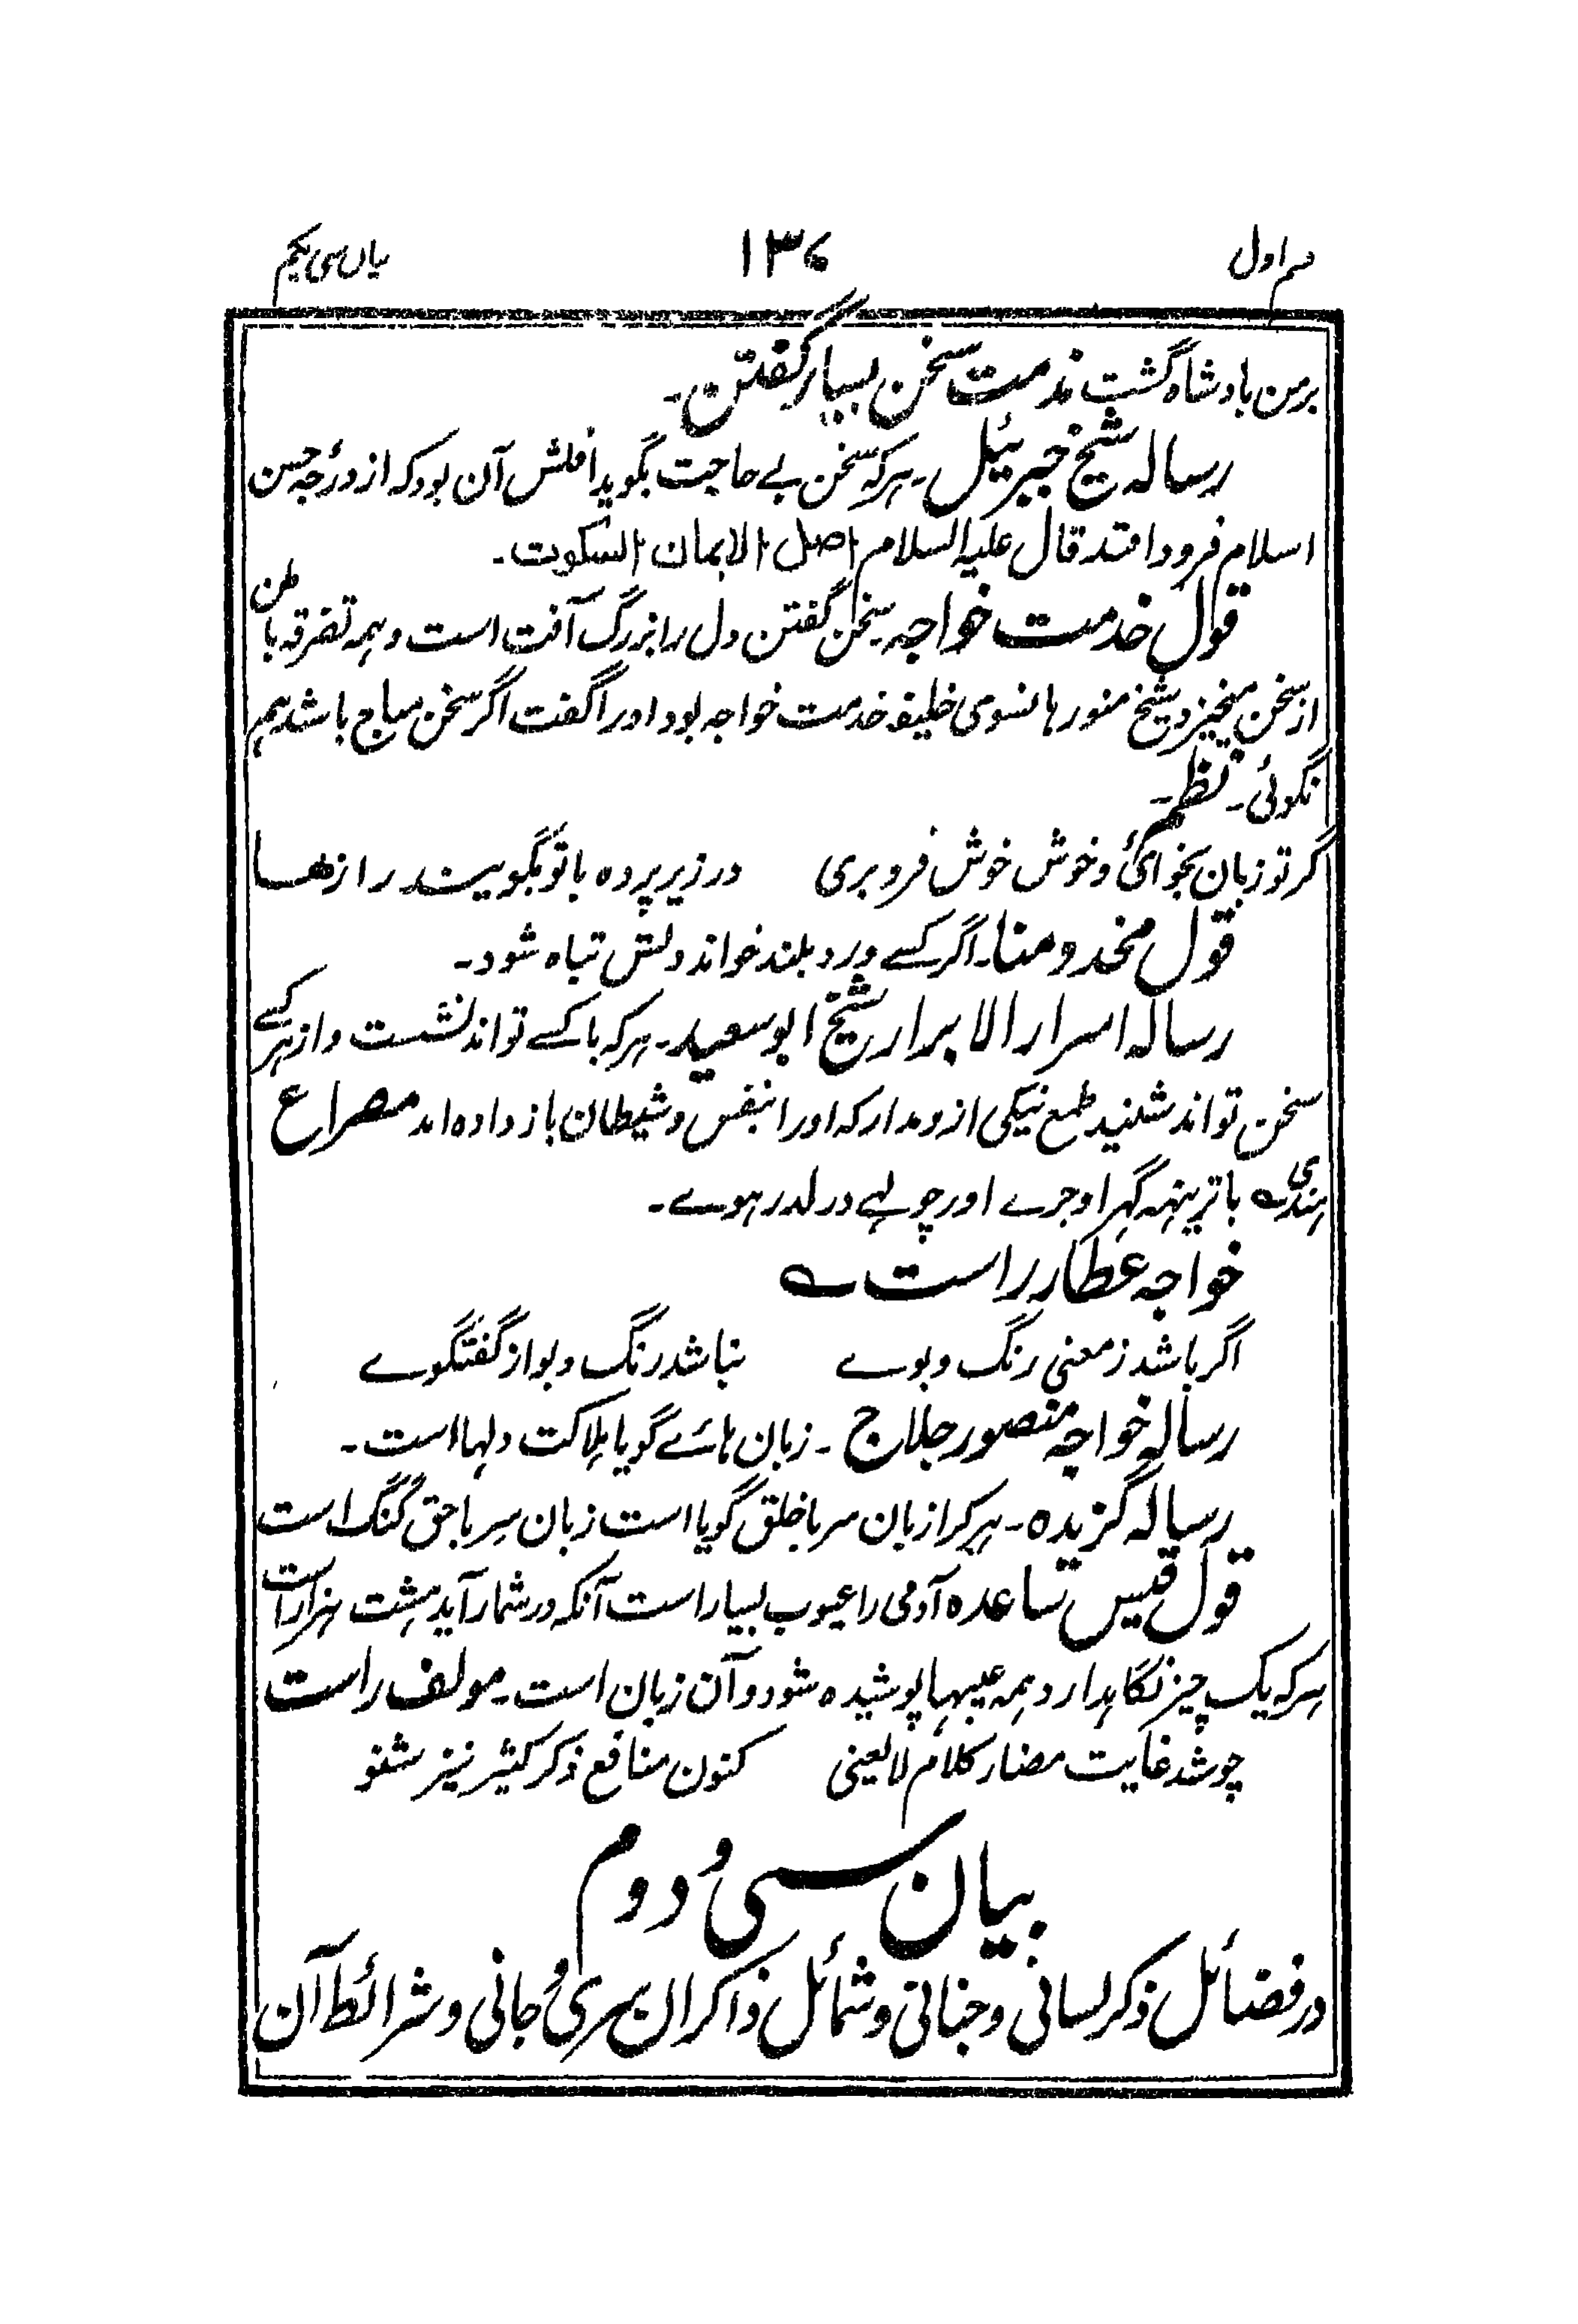 قسم اول ۱۳۷ بیان سی یکم
برمن بادشاه گشت مذمت سخن بسیار گفتن۔
رساله شیخ جبرئیل۔ ہرکہ سخن بے حاجت بگوید اقلش آن بود کہ از درجہ حسن
اسلام فرود افتد قال علیہ السلام اصل الایمان السکوت۔
قول خدمت خواجہ سخن گفتن دل را بزرگ آفت است و ہمہ تفرقہ باطن
از سخن میخیزد شیخ منور ہانسوی خلیفہ خدمت خواجہ بود اورا گفت اگر سخن مباح باشد ہم
نگوئی۔ نظم۔
گر تو زبان بخوائی و خوش خوش فرو بری در زیر پردہ با تو بگویند رازھا
قول مخدومنا۔ اگر کسے ورد بلند خواند دلش تباہ شود۔
رسالہ اسرار الابرار شیخ ابوسعید۔ ہرکہ با کسے تواند نشست و از ہر کسے
سخن تواند شنید طمع نیکی ازو مدار کہ اورا بنفس و شیطان باز دادہ اند مصراع
ہندی باتریںہہ گہر اوجرے اور چولہے در لدر ہوے۔
خواجہ عطار راست
اگر باشد ز معنی رنگ و بوے نباشد رنگ و بو از گفتگوے
رسالہ خواجہ منصور حلاج ۔ زبان ہائے گویا ہلاکت دلہا است۔
رسالہ گزیدہ۔ ہر کرا زبان سر با خلق گویا است زبان سِر با حق گنگ است
قول قیس تساعدہ آدمی را عیوب بسیار است آنکہ در شمار آید ہشت ہزار است
ہرکہ یک چیز نگاہدارد ہمہ عیبہا پوشیدہ شود و آن زبان است۔ مولف راست
چو شد غایت مضار کلام لایعنی کنون منافع ذکر کثیر نیز شنو
بیان سی و دوم
در فضائل ذکر لسانی و جنانی و شمائل ذاکران سری و جانی و شرائط آن